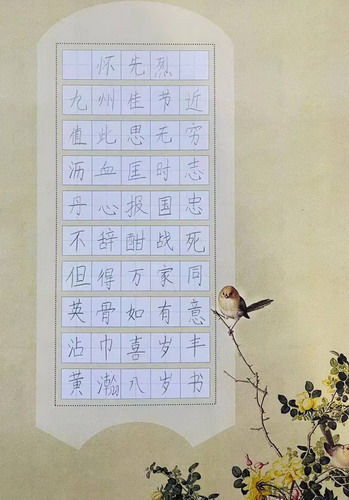 怀先烈
九州佳节近
值此思无穷
沥血匡时志
丹心报国忠
不辞酣战死
但得万家同
英骨如有意
沾巾喜岁丰
黄瀚八岁书